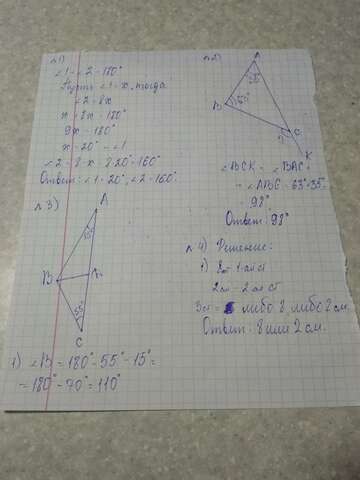 №1)
∠1 - ∠2 = 180°
Пусть ∠1 - x, тогда
∠2 = 8x
x + 8x = 180°
9x = 180°
x = 20° - ∠1
∠2 = 8·x = 8·20° = 160°
Ответ: ∠1 = 20°, ∠2 = 160°.
№2)
A
35°
B
63°
C
?
K
∠BCK = ∠BAC +
+ ∠ABC = 63° + 35° =
= 98°
Ответ: 98°
№3)
A
15°
B
55°
C
1) ∠B = 180° - 55° - 15° =
= 180° - 70° = 110°
№4) Решение:
1) 8см - 1-ая ст
2см - 2-ая ст
3ст = либо 8, либо 2 см.
Ответ: 8 или 2 см.